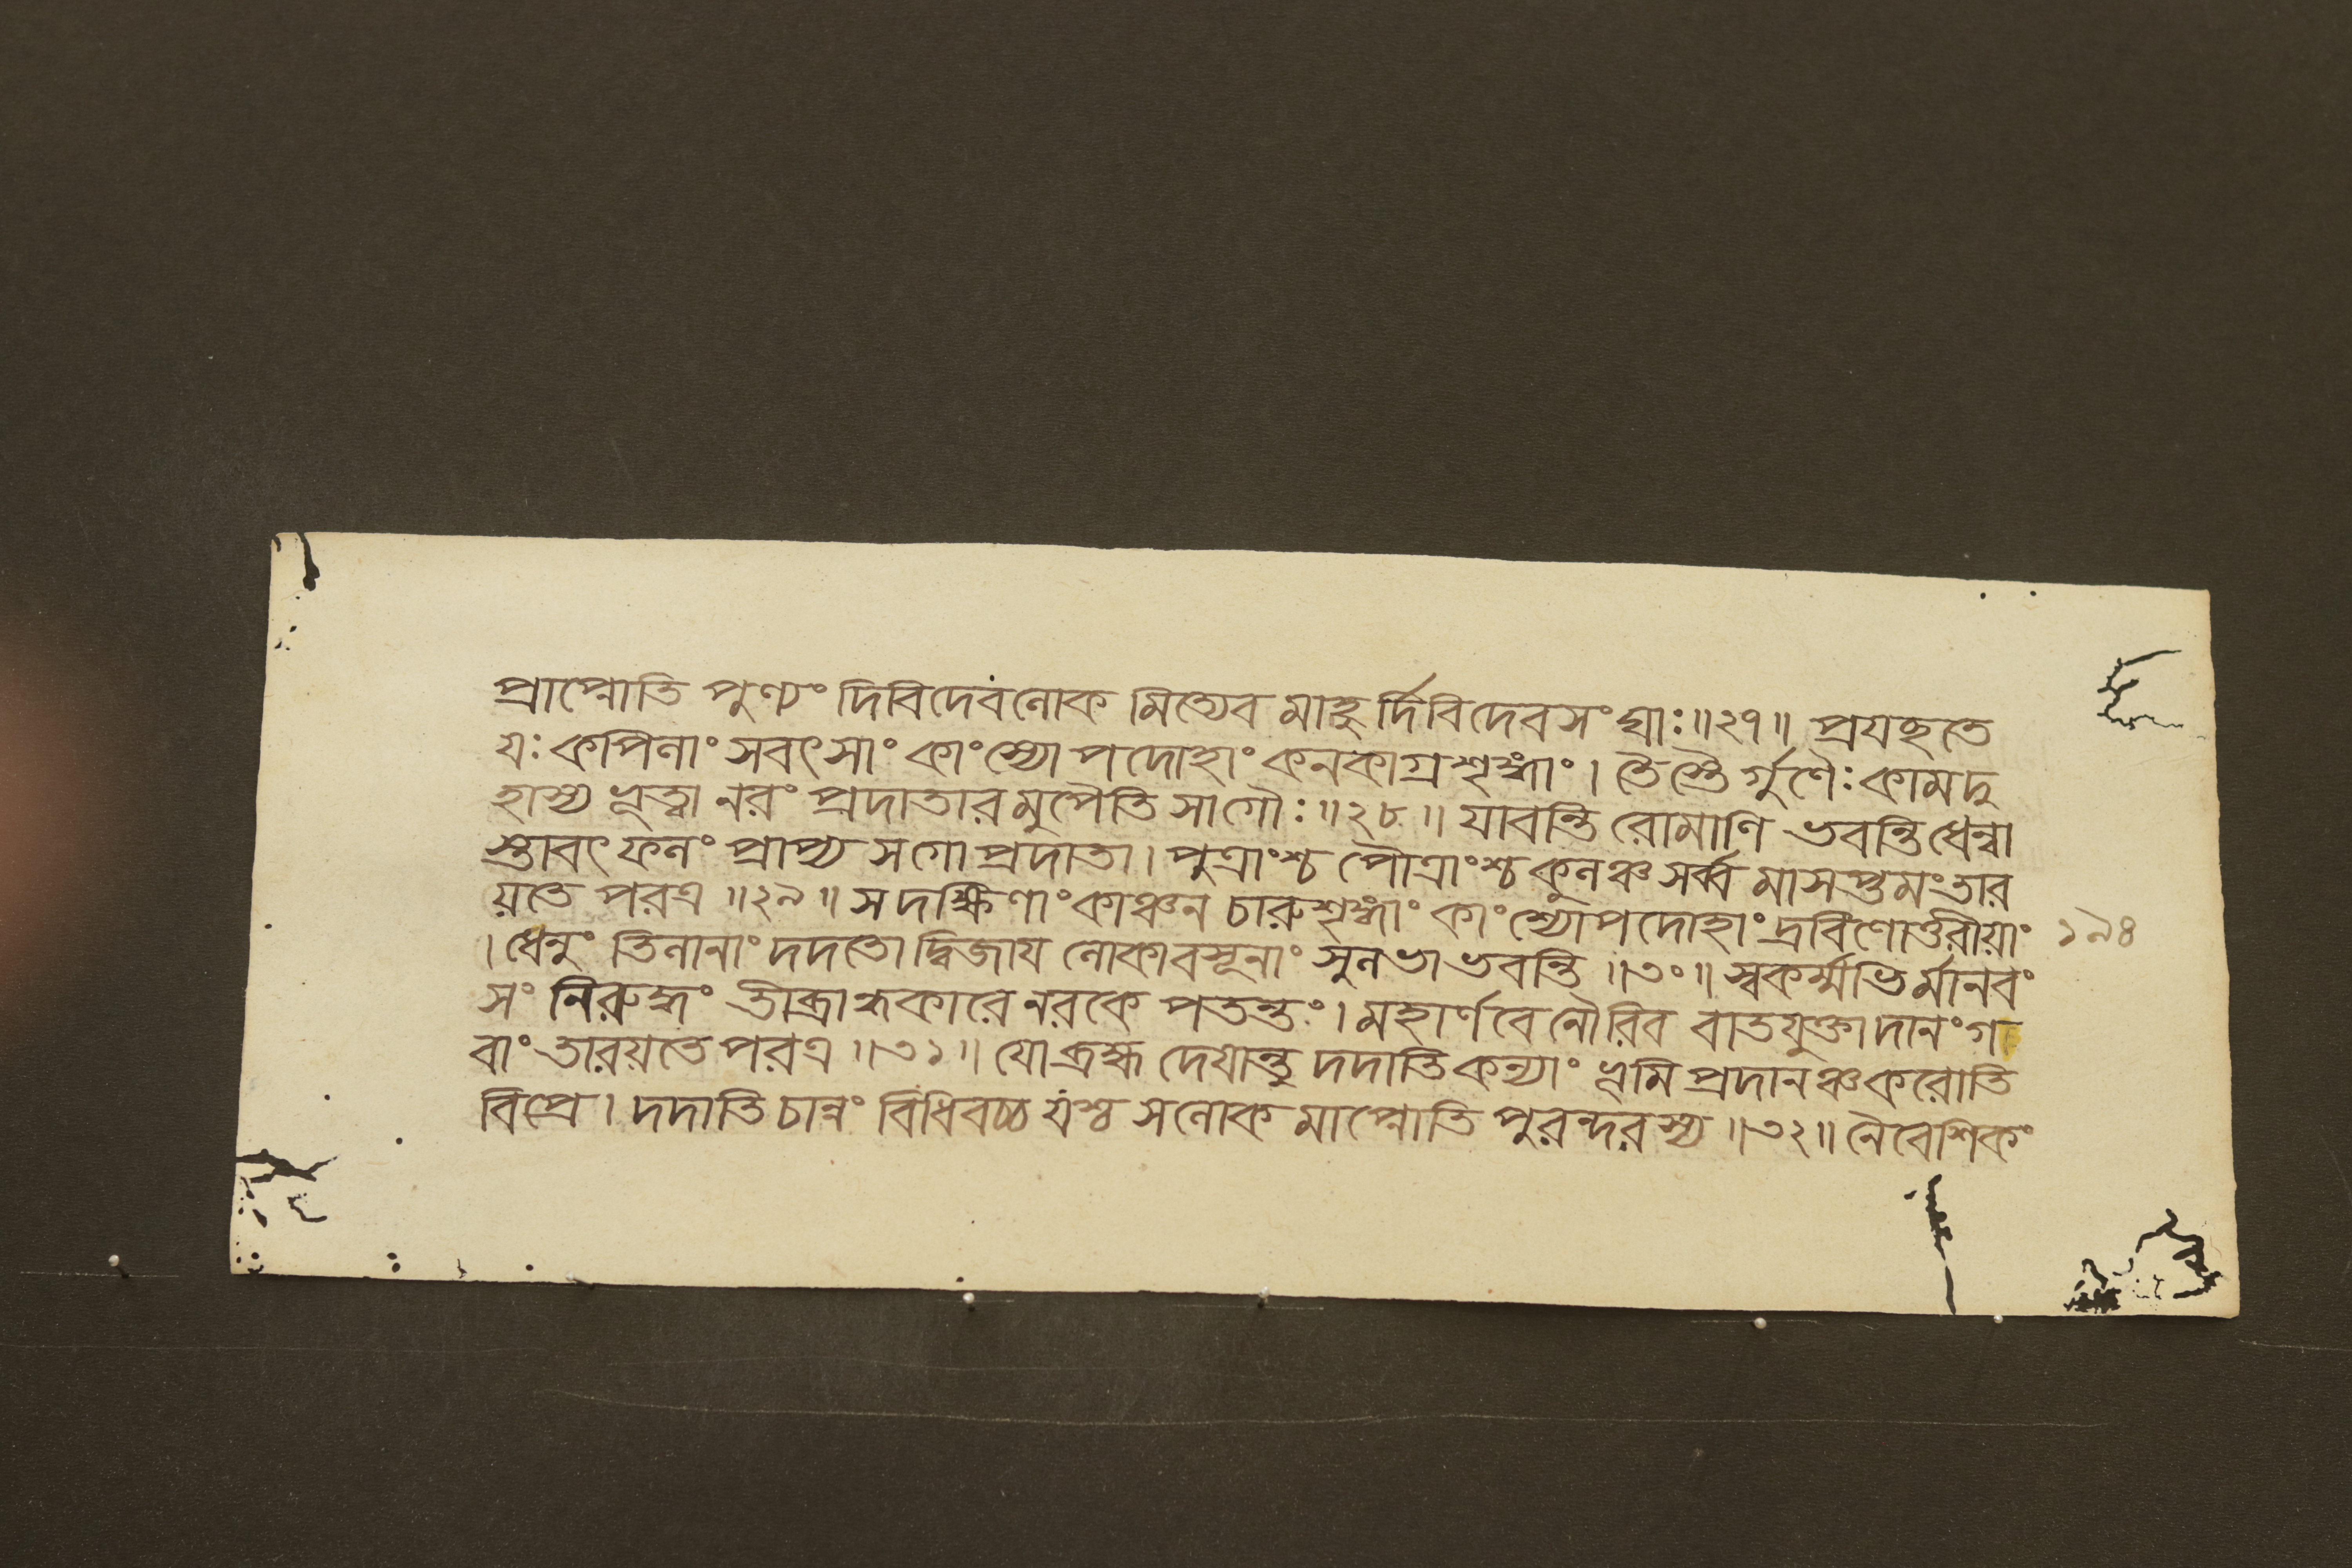 প্রাপ্নোতি পুণ্যং দিবিদেবলোক মিত্যেব মাহু র্দিবিদেবসংঘাঃ॥২৭॥ প্রযচ্ছতে
যঃ কপিলাং সবৎসাং কাংস্যোপদোহাং কনকাগ্রশৃঙ্গাং। তৈস্তৈ র্গুণৈঃ কামদু
হাস্য ভূত্বা নরং প্রদাতার মুপৈতি সাগৌঃ॥২৮॥ যাবন্তি রোমাণি ভবন্তি ধেন্বা
স্তাবৎ ফলং প্রাপ্য সগো প্রদাতা। পুত্রাংশ্চ পৌত্রাংশ্চ কুলঞ্চ সর্ব্ব মাসপ্তমং তার
য়তে পরত্র॥২৯॥ স দক্ষিণাং কাঞ্চন চারুশৃঙ্গাং কাংশ্যোপদোহাং দ্রবিণোত্তরীয়াং
। ধেনুং তিলানাং দদতো দ্বিজায লোকাবসূনাং সুলভা ভবন্তি॥৩০॥ স্বকর্ম্মভি র্মানবং
সং নিরুদ্ধং তীব্রান্ধকারে নরকে পতন্তং। মহার্ণবে নৌরিব বাতযুক্তা দানং গ
বাং তারয়তে পরত্র॥৩১॥ যো ব্রহ্ম দেযান্তু দদাতি কন্যাং ভূমি প্রদানঞ্চ করোতি
বিপ্রে। দদাতি চান্নং বিধিবচ্চ যশ্চ সলোক মাপ্নোতি পুরন্দরস্য॥৩২॥ নৈবেশিকং
১৯৪